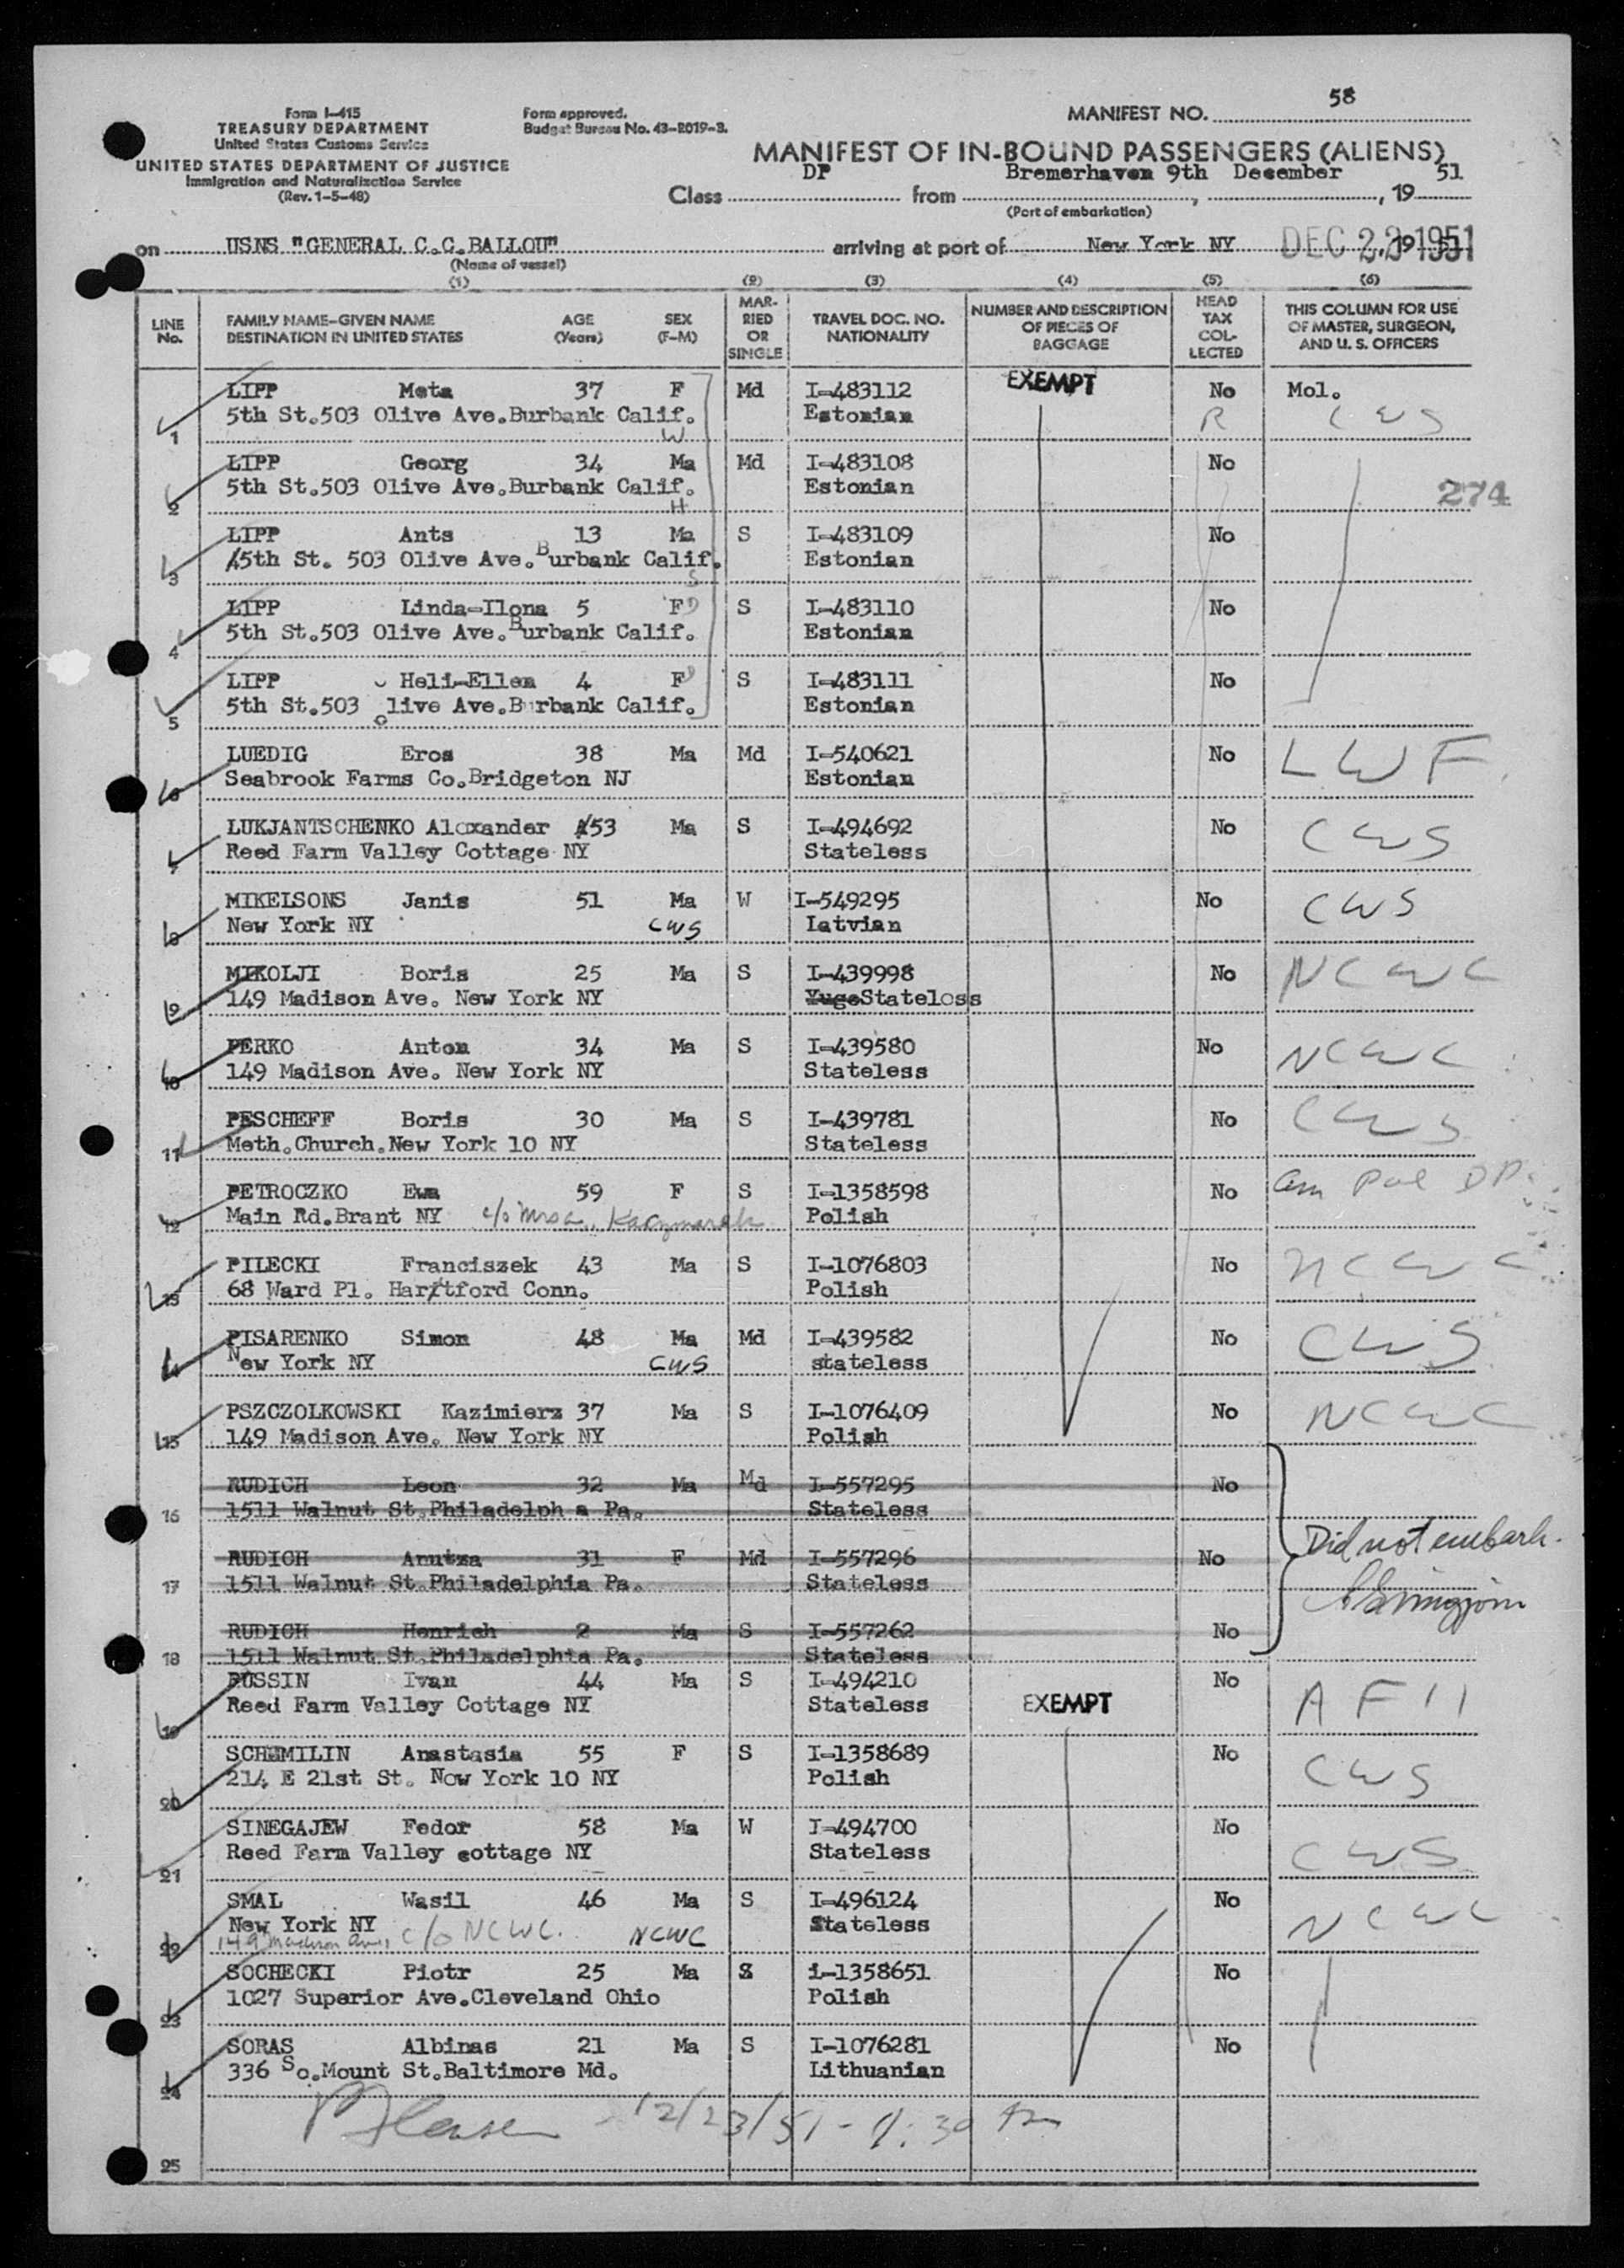 58
Form I-415
TREASURY DEPARTMENT
United States Customs Service
UNITED STATES DEPARTMENT OF JUSTICE
Immigration and Naturalization Service
(Rev. 1-5-48)
Form approved.
Budget Bureau No. 43-R019-3.
MANIFEST NO.
MANIFEST OF IN-BOUND PASSENGERS (ALIENS)
Class DP from Bremerhaven 9th December, 19 51
(Port of embarkation)
on USNS "GENERAL C.C.BALLOU" arriving at port of New York NY DEC 23 1951
(Name of vessel)
(1) (2) (3) (4) (5) (6)
LINE No. FAMILY NAME-GIVEN NAME DESTINATION IN UNITED STATES AGE (Years) SEX (F-M) MARRIED OR SINGLE TRAVEL DOC. NO. NATIONALITY NUMBER AND DESCRIPTION OF PIECES OF BAGGAGE HEAD TAX COLLECTED THIS COLUMN FOR USE OF MASTER, SURGEON, AND U. S. OFFICERS
LIPP Meta 37 F Md I-483112 EXEMPT No Mol.
1 5th St.503 Olive Ave.Burbank Calif. W Estonian R CWS
LIPP Georg 34 Ma Md I-483108 No
2 5th St.503 Olive Ave.Burbank Calif. H Estonian 274
LIPP Ants 13 Ma S I-483109 No
3 5th St. 503 Olive Ave.Burbank Calif. S Estonian
LIPP Linda-Ilona 5 F D S I-483110 No
4 5th St.503 Olive Ave.Burbank Calif. Estonian
LIPP Heli-Ellen 4 F D S I-483111 No
5 5th St.503 olive Ave.Burbank Calif. Estonian
LUEDIG Eros 38 Ma Md I-540621 No LWF
6 Seabrook Farms Co.Bridgeton NJ Estonian
LUKJANTSCHENKO Alexander 53 Ma S I-494692 No CWS
7 Reed Farm Valley Cottage NY Stateless
MIKELSONS Janis 51 Ma W I-549295 No CWS
8 New York NY CWS Latvian
MIKOLJI Boris 25 Ma S I-439998 No NCWC
9 149 Madison Ave. New York NY Yugo Stateless
PERKO Anton 34 Ma S I-439580 No NCWC
10 149 Madison Ave. New York NY Stateless
PESCHEFF Boris 30 Ma S I-439781 No CWS
11 Meth.Church.New York 10 NY Stateless
PETROCZKO Ewa 59 F S I-1358598 No Am Pol DP
12 Main Rd.Brant NY c/o Mrs. Kaczmarek Polish
PILECKI Franciszek 43 Ma S I-1076803 No NCWC
13 68 Ward Pl. Hartford Conn. Polish
PISARENKO Simon 48 Ma Md I-439582 No CWS
14 New York NY CWS stateless
PSZCZOLKOWSKI Kazimierz 37 Ma S I-1076409 No NCWC
15 149 Madison Ave. New York NY Polish
RUDICH Leon 32 Ma Md I-557295 No
16 1511 Walnut St.Philadelph a Pa. Stateless
RUDICH Anutza 31 F Md I-557296 No Did not embark.
17 1511 Walnut St.Philadelphia Pa. Stateless
RUDICH Henrich 2 Ma S I-557262 No
18 1511 Walnut St.Philadelphia Pa. Stateless
RUSSIN Ivan 44 Ma S I-494210 No
19 Reed Farm Valley Cottage NY Stateless EXEMPT
SCHUMILIN Anastasia 55 F S I-1358689 No CWS
20 214 E 21st St. New York 10 NY Polish
SINEGAJEW Fedor 58 Ma W I-494700 No CWS
21 Reed Farm Valley cottage NY Stateless
SMAL Wasil 46 Ma S I-496124 No NCWC
New York NY c/o NCWC. NCWC Stateless
22 149 Madison Ave.,
SOCHECKI Piotr 25 Ma S i-1358651 No
23 1027 Superior Ave.Cleveland Ohio Polish
SORAS Albinas 21 Ma S I-1076281 No
24 336 So.Mount St.Baltimore Md. Lithuanian
12/23/51
25